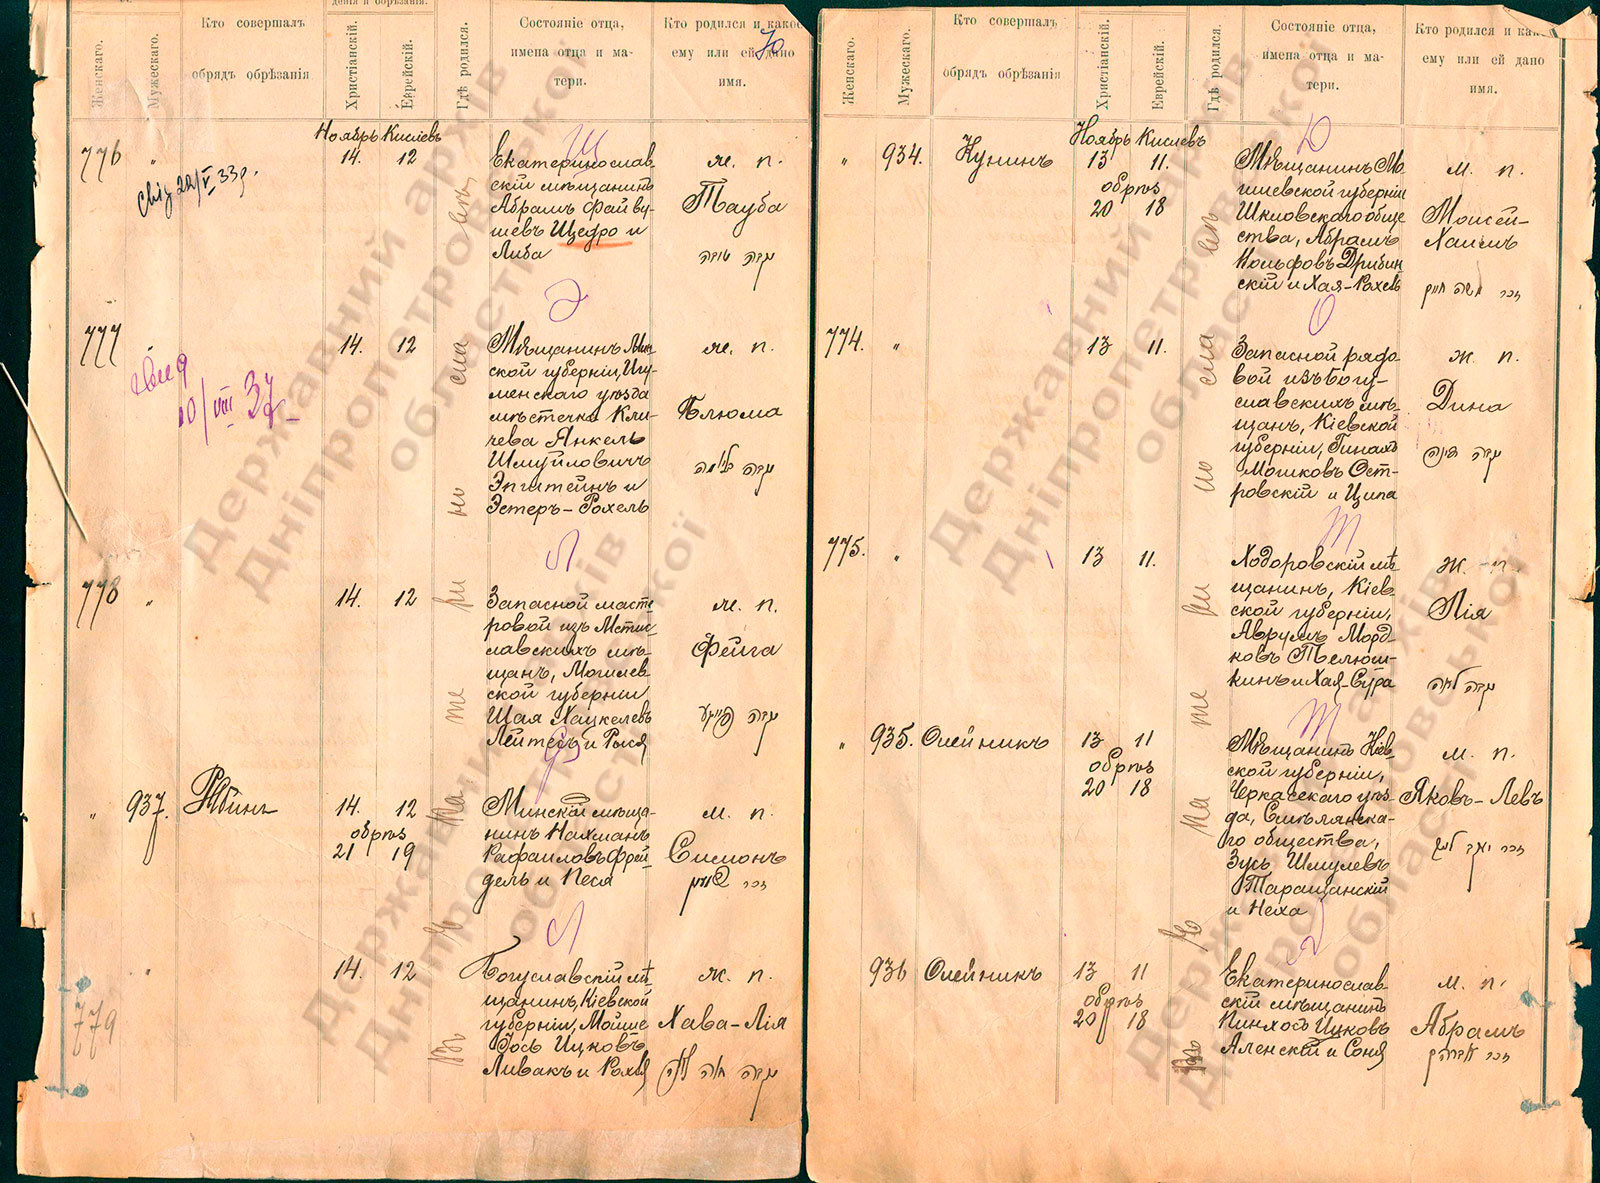 Женскаго.
Мужескаго.
Кто совершалъ
обрядъ обрѣзанія
денія и обрѣзанія.
Христіанскій.
Еврейскій.
Гдѣ родился.
Состояніе отца,
имена отца и ма-
тери.
Кто родился и какое
ему или ей дано
имя.
Ноябрь Кислевъ
776 " 14. 12
Екатеринослав
скій мѣщанинъ
Абрамъ Файву-
шевъ Щедро и
Либа
ж. п.
Тауба
свід 22/V 33р.
777 " 14. 12
Мѣщанинъ Мин
ской губерніи, Игу-
менскаго уѣзда
мѣстечка Кли-
чева Янкель
Шмуйловичъ
Эпштейнъ и
Эстеръ-Рохель
ж. п.
Блюма
10/VIII 37
778 " 14. 12
Запасной масте
ровой изъ Мстис-
лавскихъ мѣ-
щанъ, Могилев-
ской губерніи
Шая Хацкелевъ
Лейтесъ и Рыся
ж. п.
Фейга
" 937. Рябинъ 14. 12
обрѣз
21 19
Минскій мѣща-
нинъ Нахманъ
Рафаиловъ Фрей-
дель и Песя
м. п.
Симонъ
779 " 14. 12
Богуславскій мѣ
щанинъ, Кіевской
губерніи, Мойше
Іось Ицковъ
Ливакъ и Рохля
ж. п.
Хава-Лія
Въ Екатеринославѣ
Женскаго.
Мужескаго.
Кто совершалъ
обрядъ обрѣзанія
Христіанскій.
Еврейскій.
Гдѣ родился.
Состояніе отца,
имена отца и ма-
тери.
Кто родился и как
ему или ей дано
имя.
Ноябрь Кислевъ
" 934. Кунинъ 13 11.
обрѣз
20 18
Мѣщанинъ Мо
гилевской губерніи
Шкловскаго обще
ства, Абрамъ
Вольфовъ Дрибин
скій и Хая-Рохель
м. п.
Моисей-
Хаимъ
774. " 13 11.
Запасной рядо
вой изъ Богу-
славскихъ мѣ-
щанъ, Кіевской
губерніи, Пинахъ
Мошковъ Ост-
ровскій и Ципа
ж. п.
Дина
775. " 13 11.
Ходоровскій мѣ
щанинъ, Кіев-
ской губерніи,
Аврумъ Морд-
ковъ Телюш-
кинъ и Хая-Сура
ж. п.
Лія
" 935. Олейникъ 13 11
обрѣз
20 18
Мѣщанинъ Кіев-
ской губерніи,
Черкасскаго уѣз-
да, Смѣлянска-
го общества,
Зусь Шмулевъ
Таращанскій
и Неха
м. п.
Яковъ-Левъ
936 Олейникъ 13 11
обрѣз
20 18
Екатеринослав-
скій мѣщанинъ
Пинхосъ Ицковъ
Аленскій и Соня
м. п.
Абрамъ
Державний архів
Дніпропетровської
області